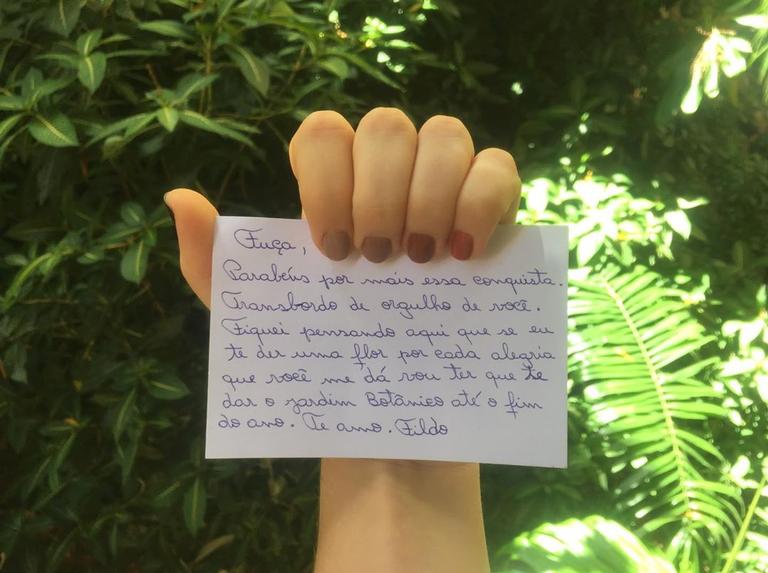 Fuça,
Parabéns por mais essa conquista.
Transbordo de orgulho de você.
Fiquei pensando aqui que se eu
te der uma flor por cada alegria
que você me dá vou ter que te
dar o jardim Botânico até o fim
do ano. Te amo. Fildo